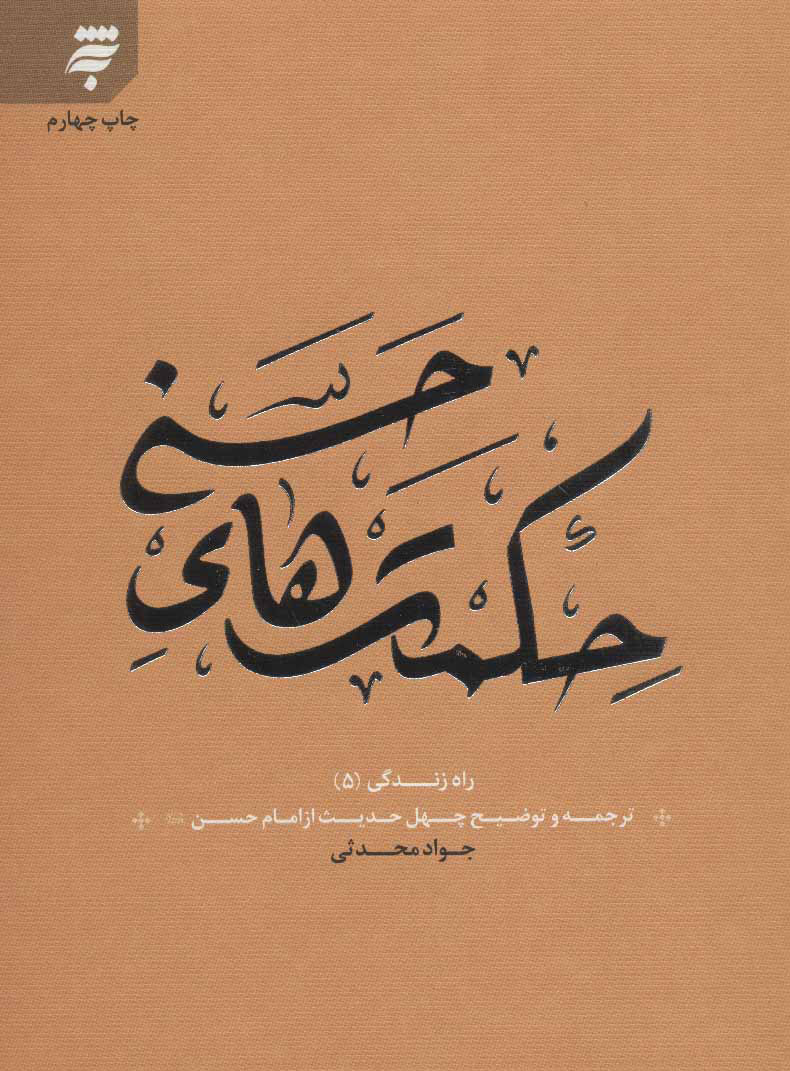 چاپ چهارم
حِکمَت‌هایِ
حَسَنی
راه زندگی (۵)
ترجمه و توضیح چهل حدیث از امام حسن
جواد محدثی